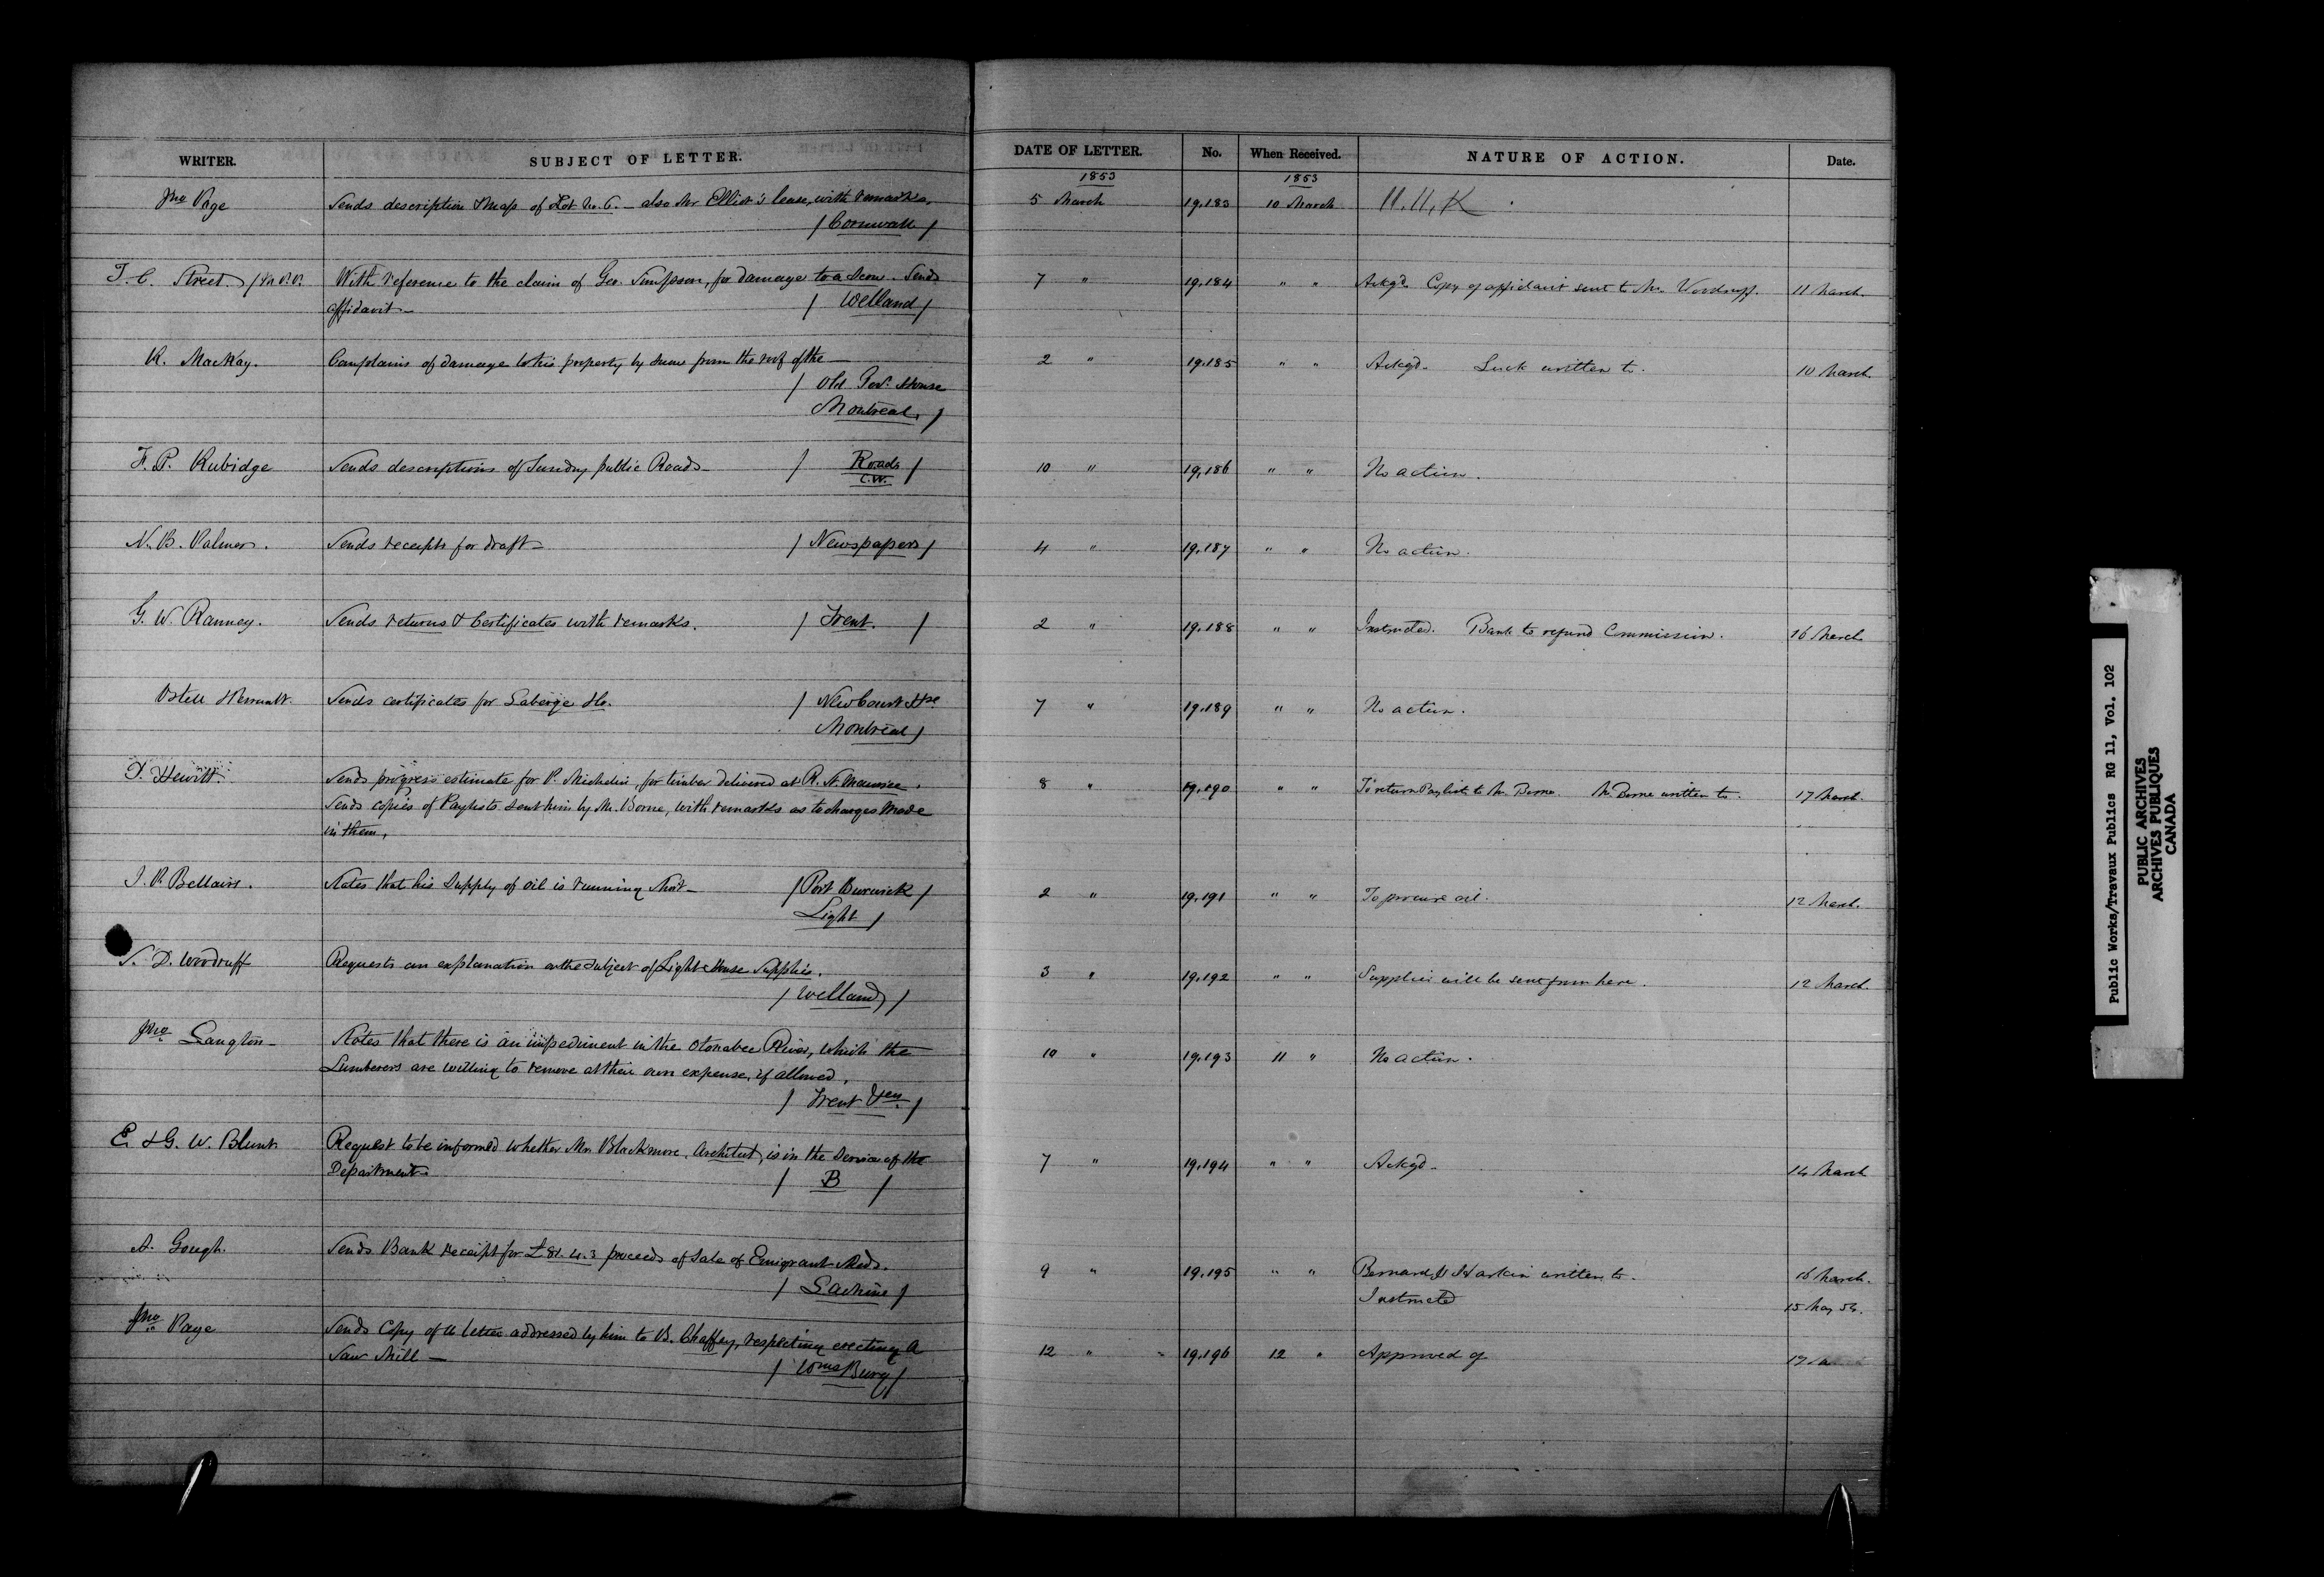 WRITER. SUBJECT OF LETTER. DATE OF LETTER. No. When Received. NATURE OF ACTION. Date.
1853 1853
Jno Page Sends description & Map of Lot No. 6. - also Mr Elliot's lease, with remarks. 5 March 19,183 10 March H.H.K
/ Cornwall /
T. C. Street. / M.P.P. With reference to the claim of Geo. Simpson, for damage to a Scow. Sends 7 " 19,184 " " Ackgd. Copy of affidavit sent to Mr. Woodruff. 11 March.
affidavit - / Welland /
K. MacKay. Complains of damage to his property by snow from the roof of the 2 " 19,185 " " Ackgd. written to. 10 March.
/ Old Gov. House
Montreal. /
F. P. Rubidge Sends descriptions of Sundry public Roads - / Roads / 10 " 19,186 " " No action.
C.W.
N. B. Palmer. Sends receipts for draft - / Newspapers / 4 " 19,187 " " No action.
G. W. Ranney. Sends returns & Certificates with remarks. / Trent. / 2 " 19,188 " " Instructed. Bank to refund Commission. 16 March
Ostell & Perrault. Sends certificates for Laberge &c. / New Court Hse 7 " 19,189 " " No action.
Montreal /
T. Hewitt. Sends progress estimate for P. Michelin for timber delivered at R. St. Maurice. 8 " 19,190 " " To return Paylist to Mr. Borne. Mr. Borne written to. 17 March.
Sends copies of Paylists sent him by Mr. Borne, with remarks as to charges made
in them.
J. P. Bellairs. States that his supply of oil is running short - / Port Burwick / 2 " 19,191 " " To procure oil. 12 March.
Light /
S. D. Woodruff Requests an explanation on the subject of Light House Supplies. 3 " 19,192 " " Supplies will be sent from here. 12 March.
/ Welland /
Jno Langton - States that there is an impediment in the Otonabee River, which the 10 " 19,193 11 " No action.
Lumberers are willing to remove at their own expense, if allowed.
/ Trent /
E. & G. W. Blunt Request to be informed whether Mr. Blackmore, Architect, is in the Service of the 7 " 19,194 " " Ackgd - 14 March
Department - / B /
A. Gough. Sends Bank receipt for £81.4.3 proceeds of Sale of Emigrant Sheds. 9 " 19,195 " " Bernard & Harkin written to. 16 March.
/ Lachine / Instructed 15 May 54.
Jno Page Sends Copy of a letter addressed by him to B. Chaffey, respecting erecting a 12 " 19,196 12 " Approved of 17
Saw Mill - / WmsBurg /
Public Works/Travaux Publics RG 11, Vol. 102
PUBLIC ARCHIVES
ARCHIVES PUBLIQUES
CANADA